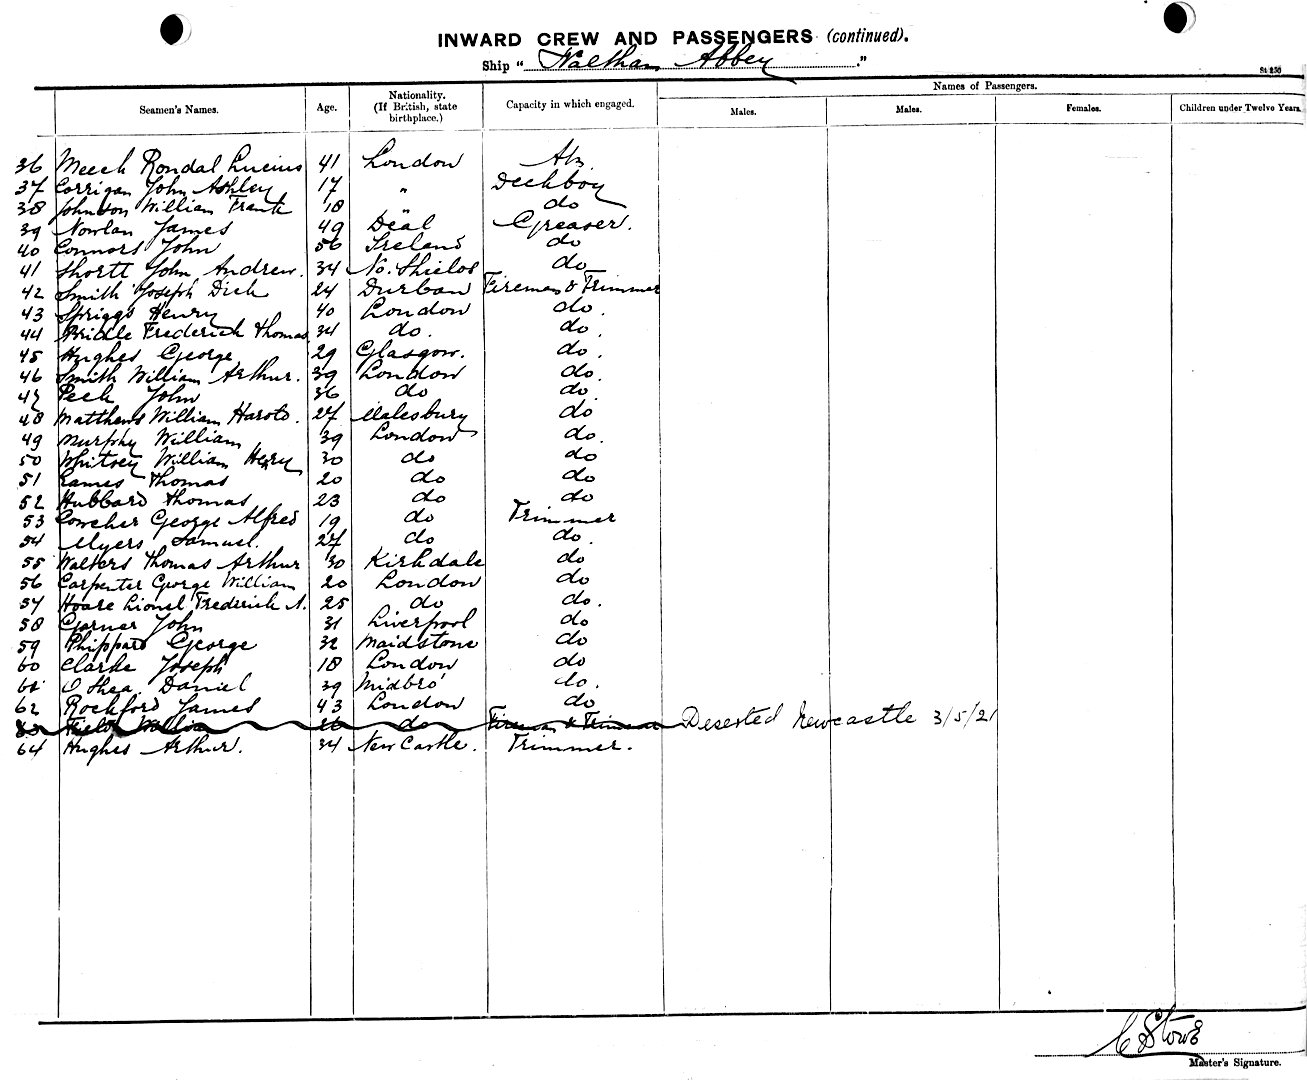 INWARD CREW AND PASSENGERS (continued).
Ship "Waltham Abbey."
St 230
Names of Passengers.
Seamen's Names. Age. Nationality. (If British, state birthplace.) Capacity in which engaged. Males. Males. Females. Children under Twelve Years.
36 Meech Rondal Lucius 41 London Ab.
37 Corrigan John Ashley 17 " Deckboy
38 Johnson William Frank 18 " do
39 Nowlan James 49 Deal Greaser.
40 Connors John 56 Ireland do
41 Shortt John Andrew. 34 No. Shields do
42 Smith Joseph Dick 24 Durban Fireman & Trimmer
43 Spriggs Henry 40 London do.
44 Frederick Thomas 34 do. do.
45 Hughes George 29 Glasgow. do.
46 Smith William Arthur. 39 London do.
47 Peck John 36 do do.
48 Matthews William Harold. 27 Malesbury do
49 Murphy William 39 London do.
50 William Henry 30 do do
51 Eames Thomas 20 do do
52 Hubbard Thomas 23 do do
53 Cowcher George Alfred 19 do Trimmer
54 Myers Samuel. 27 do do.
55 Walters Thomas Arthur 30 Kirkdale do
56 Carpenter George William 20 London do
57 Hoare Lionel Frederick A. 25 do do.
58 Garner John 31 Liverpool do
59 Phippard George 32 Maidstone do
60 Clarke Joseph 18 London do
61 O'Shea Daniel 39 Midbro' do.
62 Rockford James 43 London do
63 William 26 do Fireman & Trimmer Deserted Newcastle 3/5/21
64 Hughes Arthur. 34 New Castle. Trimmer.
C Stowe
Master's Signature.